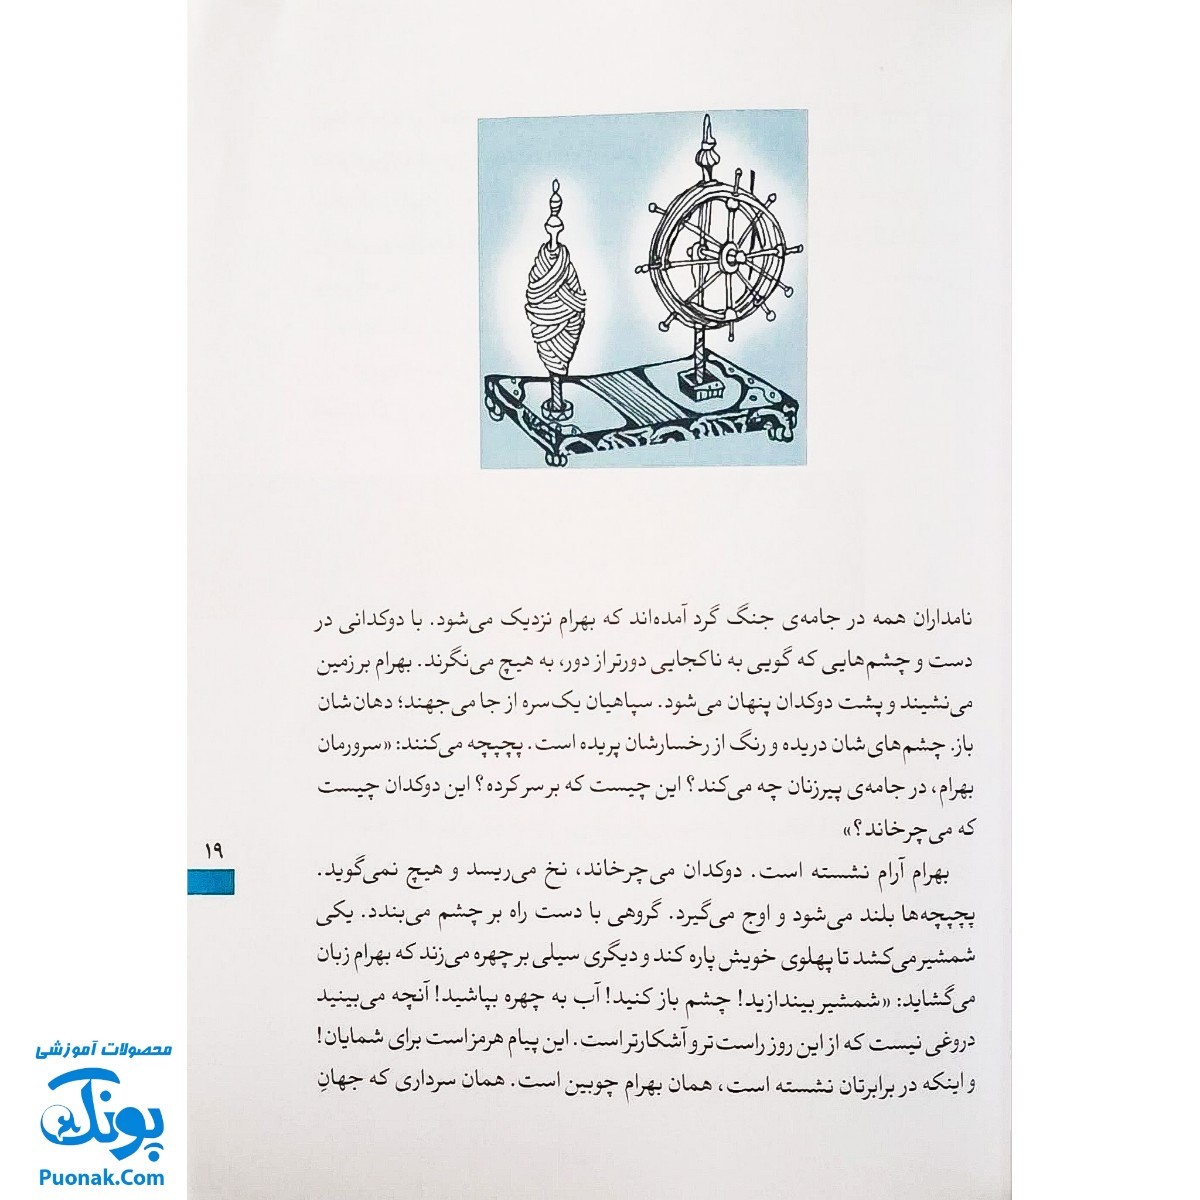 نامداران همه در جامه‌ی جنگ گرد آمده‌اند که بهرام نزدیک می‌شود. با دوکدانی در
دست و چشم‌هایی که گویی به ناکجایی دورتر از دور، به هیچ می‌نگرند. بهرام بر زمین
می‌نشیند و پشت دوکدان پنهان می‌شود. سپاهیان یک‌سره از جا می‌جهند؛ دهان‌شان
باز. چشم‌های‌شان دریده و رنگ از رخسارشان پریده است. پچپچه می‌کنند: «سرورمان
بهرام، در جامه‌ی پیرزنان چه می‌کند؟ این چیست که بر سر کرده؟ این دوکدان چیست
که می‌چرخاند؟»
بهرام آرام نشسته است. دوکدان می‌چرخاند، نخ می‌ریسد و هیچ نمی‌گوید.
پچپچه‌ها بلند می‌شود و اوج می‌گیرد. گروهی با دست راه بر چشم می‌بندد. یکی
شمشیر می‌کشد تا پهلوی خویش پاره کند و دیگری سیلی بر چهره می‌زند که بهرام زبان
می‌گشاید: «شمشیر بیندازید! چشم باز کنید! آب به چهره بپاشید! آنچه می‌بینید
دروغی نیست که از این روز راست‌تر و آشکارتر است. این پیام هرمز است برای شمایان!
و اینکه در برابرتان نشسته است، همان بهرام چوبین است. همان سرداری که جهانِ
۱۹
محصولات آموزشی
پونک
Puonak.Com